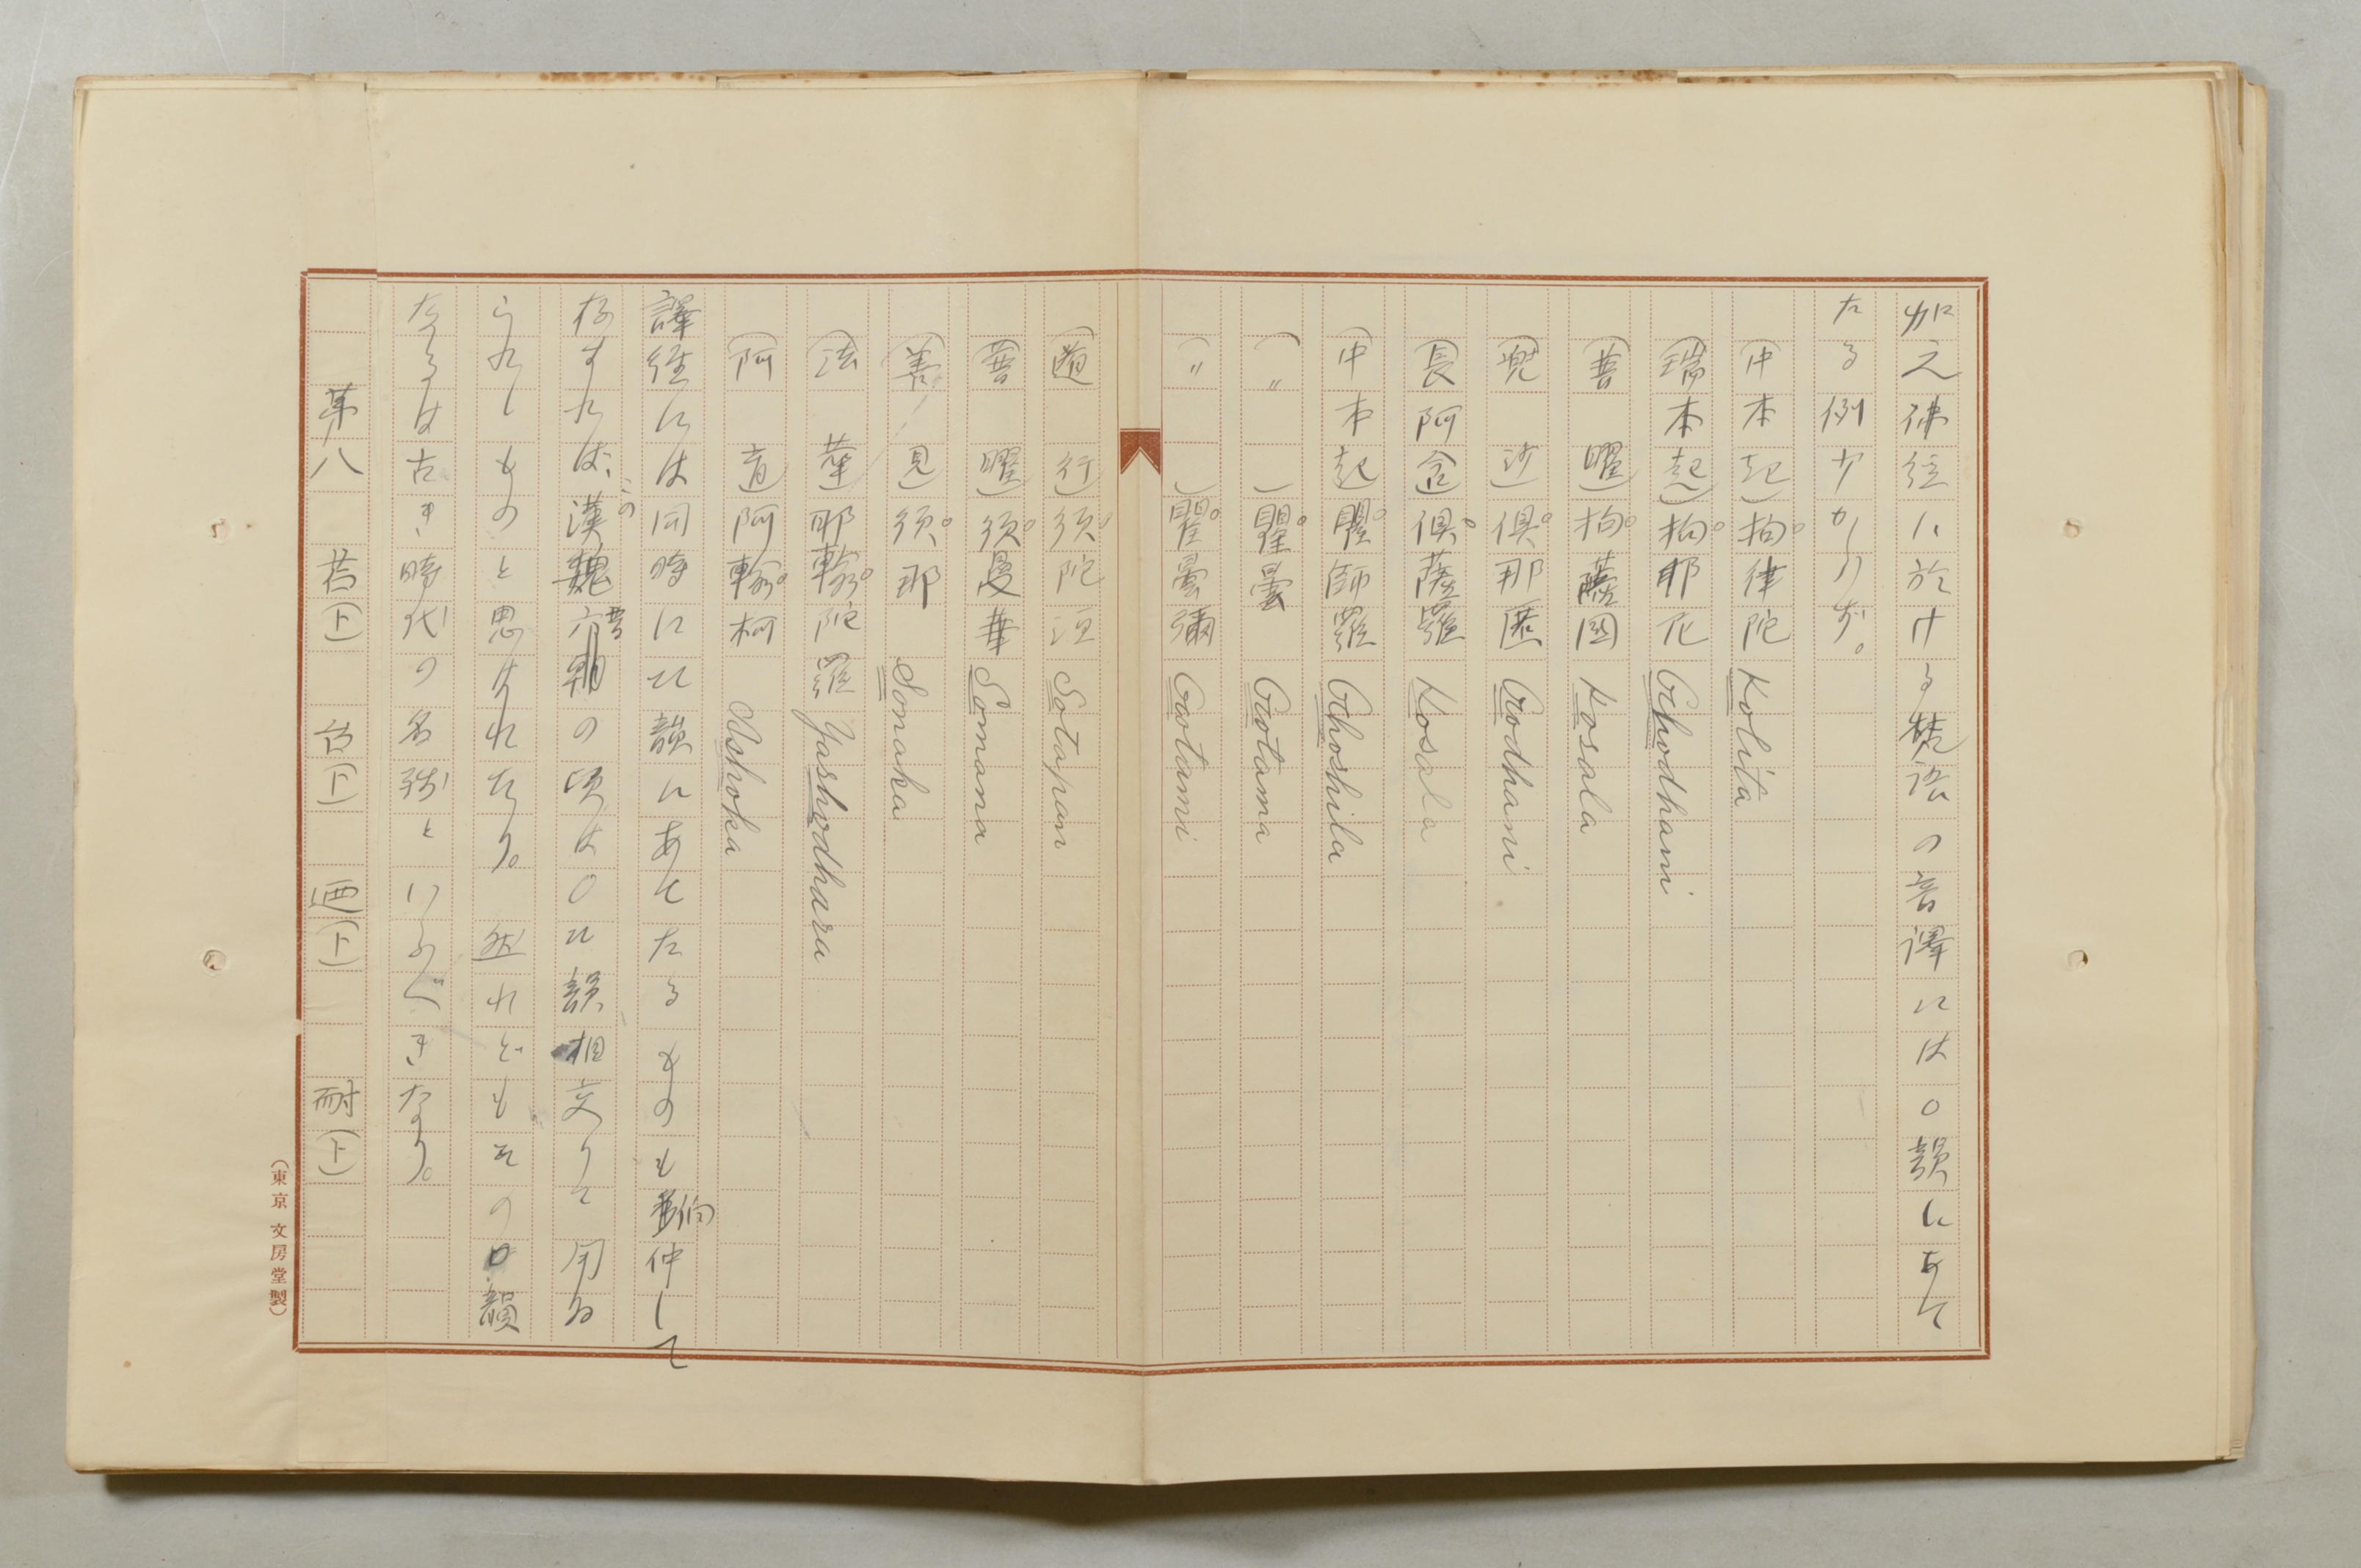 加之佛経に於ける梵語の音譯にはO韻にあて
たる例少からず。
(中本起)拘。律陀 Kolita
(瑞本起)拘。耶尼 Ghodhani
(普曜)拘。薩國 Kosala
(兜沙)倶。那匿 Godhani
(長阿含)倶。薩羅 Kosala
(中本起)瞿。師羅 Ghoshila
(〃)瞿。曇 Gotama
(〃)瞿。曇彌 Gotami
(道行)須。陀洹 Sotapan
(普曜)須。曼華 Somana
(善見)須。那 Sonaka
(法華)耶輸。陀羅 Yashodhara
(阿育)阿輸。柯 Ashoka
譯経には同時にu韻にあてたるものも伯仲して
存すれば、この漢魏晋の頃はOu韻相交りて用ゐ
られしものと思はれたり。然れどもそのO韻
なるは古き時代の名残といふべきなり。
第八 苔(ト) 台(ト) 廼(ト) 耐(ト)
(東京 文房堂製)